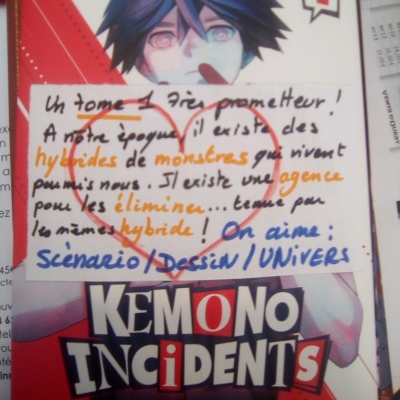 Un tome 1 très prometteur !
A notre époque, il existe des
hybrides de monstres qui vivent
parmis nous. Il existe une agence
pour les éliminer... tenue par
les mêmes hybride ! On aime :
Scénario/Dessin/UNivers
KEMONO
INCIDENTS